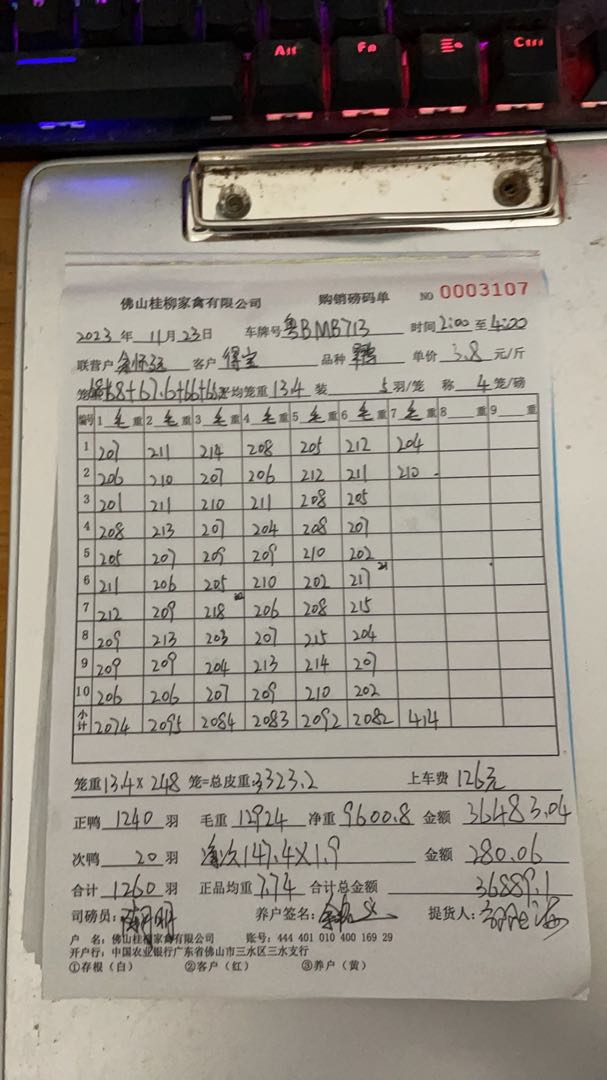 Alt Fn Ctrl
佛山桂柳家禽有限公司 购销磅码单 NO 0003107
2023 年 11 月 23 日 车牌号 粤BMB713 时间 2:00 至 4:00
联营户 客户 得宝 品种 单价 3.8 元/斤
68+67.6+66+66 平均笼重 13.4 装 5 羽/笼 称 4 笼/磅
编号 1 毛 重 2 毛 重 3 毛 重 4 毛 重 5 毛 重 6 毛 重 7 毛 重 8 重 9 重
1 207 211 214 208 205 212 204
2 206 210 207 206 212 211 210
3 201 211 210 211 208 205
4 208 213 207 204 208 207
5 205 207 209 209 210 202
6 211 206 205 210 202 217
7 212 209 218 206 208 215
8 209 213 203 207 215 204
9 209 209 204 213 214 207
10 206 206 207 209 210 202
小计 2074 2095 2084 2083 2092 2082 414
笼重 13.4 × 248 笼=总皮重: 3323.2 上车费 126元
正鸭 1240 羽 毛重 12924 净重 9600.8 金额 36483.04
次鸭 20 羽 次 147.4×1.9 金额 280.06
合计 1260 羽 正品均重 7.74 合计总金额 36889.1
司磅员: 养户签名: 提货人:
户 名: 佛山桂柳家禽有限公司 账号: 444 401 010 400 169 29
开户行: 中国农业银行广东省佛山市三水区三水支行
①存根（白） ②客户（红） ③养户（黄）